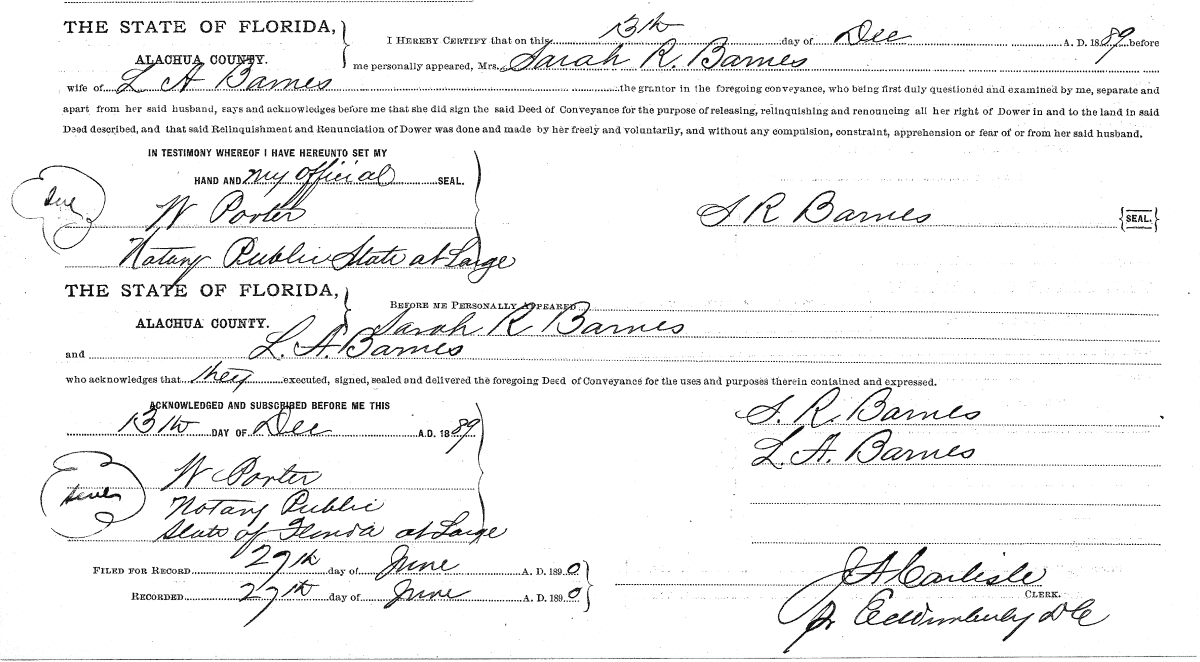 THE STATE OF FLORIDA,
ALACHUA COUNTY.
I HEREBY CERTIFY that on this 13th day of Dec A. D. 1889 before
me personally appeared, Mrs. Sarah R. Barnes
wife of L A Barnes the grantor in the foregoing conveyance, who being first duly questioned and examined by me, separate and
apart from her said husband, says and acknowledges before me that she did sign the said Deed of Conveyance for the purpose of releasing, relinquishing and renouncing all her right of Dower in and to the land in said
Deed described, and that said Relinquishment and Renunciation of Dower was done and made by her freely and voluntarily, and without any compulsion, constraint, apprehension or fear of or from her said husband.
IN TESTIMONY WHEREOF I HAVE HEREUNTO SET MY
HAND AND my official SEAL.
W Porter
S R Barnes {SEAL.}
Notary Public State at Large
THE STATE OF FLORIDA,
ALACHUA COUNTY.
BEFORE ME PERSONALLY APPEARED
Sarah R Barnes
and L. A. Barnes
who acknowledges that they executed, signed, sealed and delivered the foregoing Deed of Conveyance for the uses and purposes therein contained and expressed.
ACKNOWLEDGED AND SUBSCRIBED BEFORE ME THIS
13th DAY OF Dec A.D. 1889
S. R. Barnes
L. A. Barnes
W Porter
Notary Public
State of Florida at Large
FILED FOR RECORD 27th day of June A. D. 1890
RECORDED 27th day of June A. D. 1890
J A Carlisle
CLERK.
DC